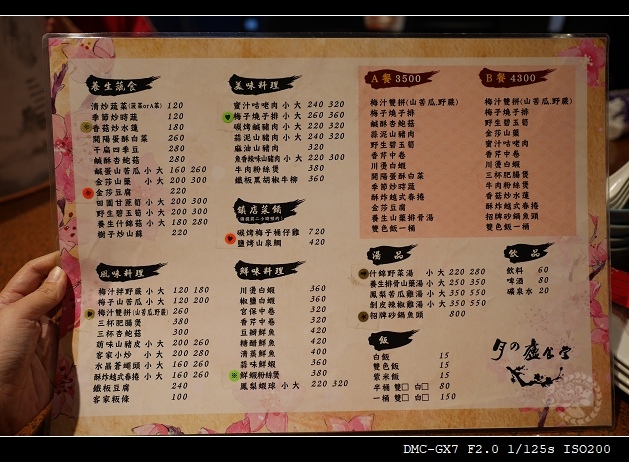 養生蔬食
清炒蔬菜(菠菜orA菜) 120
季節炒時蔬 120
香菇炒水蓮 180
開陽蛋酥白菜 260
干扁四季豆 280
鹹酥杏鮑菇 280
鹹蛋山苦瓜 小 大 160 260
金莎山藥 小 大 200 300
金莎豆腐 220
田園甘蔗筍 小 大 200 300
野生碧玉筍 小 大 200 300
養生什錦菇 小 大 180 280
樹子炒山蘇 220
風味料理
梅汁拌野蕨 小 大 120 180
梅子山苦瓜 小 大 120 200
梅汁雙拼(山苦瓜,野蕨) 260
三杯肥腸煲 380
三杯杏鮑菇 300
萌味山豬皮 小 大 200 260
客家小炒 小 大 200 280
水晶蒼蠅頭 小 大 160 260
酥炸越式春捲 小 大 160 260
鐵板豆腐 240
客家粄條 100
美味料理
蜜汁咕咾肉 小 大 240 320
梅子燒子排 小 大 260 360
碳烤鹹豬肉 小 大 220 320
蒜泥山豬肉 小 大 220 320
麻油山豬肉 320
魚香辣味山豬肉 小 大 220 300
牛肉粉絲煲 380
鐵板黑胡椒牛柳 360
鎮店菜餚
碳烤梅子桶仔雞 720
鹽烤山泉鯛 420
鮮味料理
川燙白蝦 360
椒鹽白蝦 360
宮保中卷 320
香芹中卷 320
豆瓣鮮魚 420
糖醋鮮魚 420
清蒸鮮魚 400
蒜味鮮蝦 360
鮮蝦粉絲煲 380
鳳梨蝦球 小 大 220 320
A 餐 3500
梅汁雙拼(山苦瓜,野蕨)
梅子燒子排
鹹酥杏鮑菇
野生碧玉筍
蒜泥山豬肉
香芹中卷
川燙白蝦
開陽蛋酥白菜
季節炒時蔬
酥炸越式春捲
金莎豆腐
養生山藥排骨湯
雙色飯一桶
B 餐 4300
梅汁雙拼(山苦瓜,野蕨)
梅子燒子排
野生碧玉筍
金莎山藥
蜜汁咕咾肉
香芹中卷
川燙白蝦
三杯肥腸煲
牛肉粉絲煲
香菇炒水蓮
酥炸越式春捲
招牌砂鍋魚頭
雙色飯一桶
湯品
什錦野菜湯 小 大 220 280
養生排骨山藥湯 小 大 250 350
鳳梨苦瓜雞湯 小 大 350 550
剝皮辣椒雞湯 小 大 350 550
招牌砂鍋魚頭 800
飲品
飲料 60
啤酒 80
礦泉水 20
飯
白飯 15
雙色飯 15
紫米飯 15
半桶 雙□ 白□ 80
一桶 雙□ 白□ 150
月の廬食堂
DMC-GX7 F2.0 1/125s ISO200